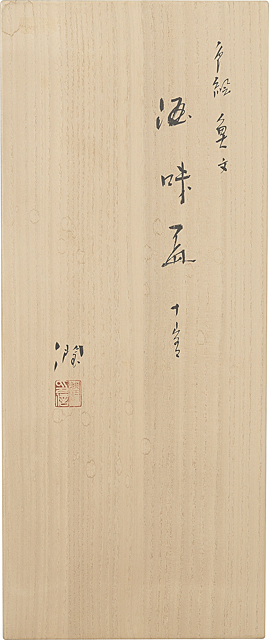 色絵 魚文
酒味皿 十客